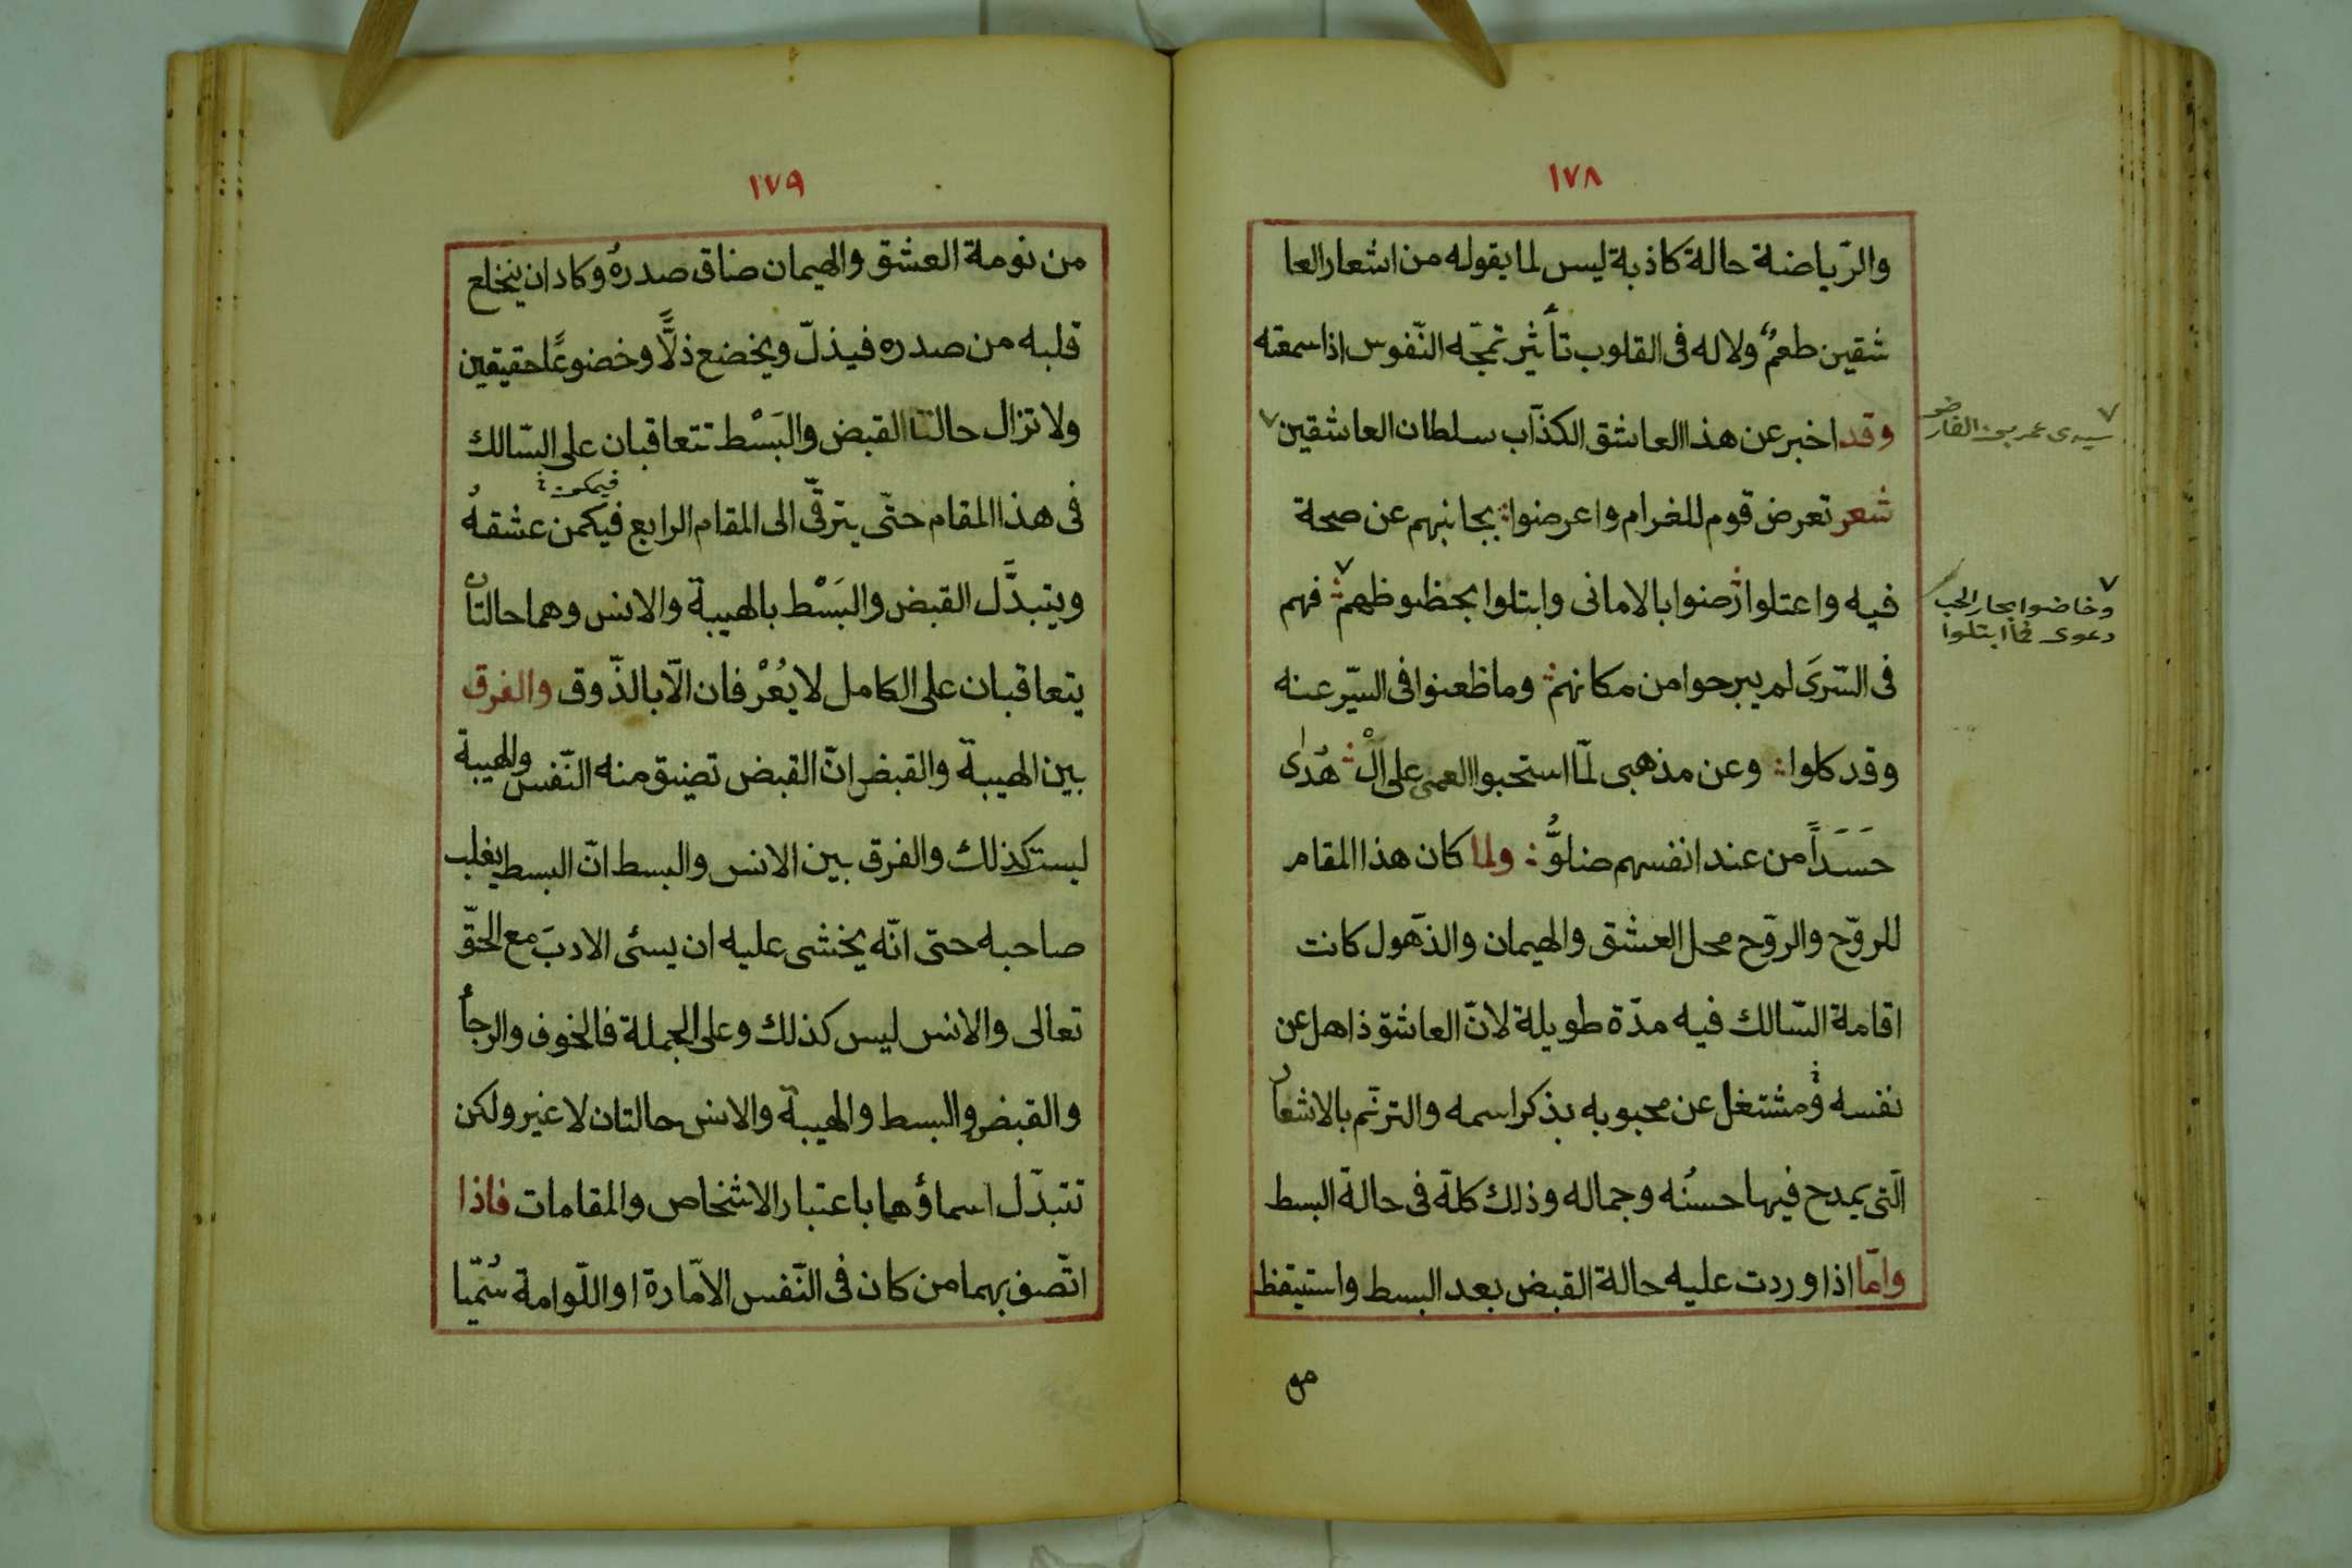 ١٧٨
والرّياضة حالة كاذبة ليس لما يقوله من اشعار العا
شقين طعمٌ ولا له فى القلوب تأثير تمجّه النّفوس اذا سمعته
وقد اخبر عن هذا العاشق الكذّاب سلطان العاشقين
سيدى عمر بن الفارض
شعر تعرض قوم للغرام واعرضوا بجانبهم عن صحة
فيه واعتلوا رضوا بالامانى وابتلوا بحظوظهم فهم
وخاضوا بحار الحب
دعوى فما ابتلوا
فى السّرى لم يبرحوا من مكانهم وما ظعنوا فى السّير عنه
وقد كلوا وعن مذهبى لمّا استحبوا العمى على الْ هُدٰى
حَسَداً من عند انفسهم ضلوُّ ولما كان هذا المقام
للروّح والروّح محل العشق والهيمان والذّهول كانت
اقامة السّالك فيه مدّة طويلة لانّ العاشق ذاهل عن
نفسه ومشتغل عن محبوبه بذكر اسمه والترنّم بالاشعار
الّتى يمدح فيها حسنُه وجماله وذلك كلّه فى حالة البسط
وامّا اذا وردت عليه حالة القبض بعد البسط واستيقظ
من
١٧٩
من نومة العشق والهيمان ضاق صدرهُ وكاد ان ينخلع
قلبه من صدره فيذلّ ويخضع ذلًّا وخضوعًا حقيقين
ولا تزال حالتا القبض والبَسْط تتعاقبان على السّالك
فيكمن
فى هذا المقام حتّى يترقّى الى المقام الرابع فيكمن عشقهُ
ويتبدَّل القبض والبَسْط بالهيبة والانس وهما حالتان
يتعاقبان على الكامل لا يُعْرفان الّا بالذّوق والفرق
بين الهيبة والقبض انّ القبض تضيق منه النّفس والهيبة
ليست كذلك والفرق بين الانس والبسط انّ البسط يغلب
صاحبه حتى انّه يخشى عليه ان يسئ الادبَ مع الحقّ
تعالى والانس ليس كذلك وعلى الجملة فالخوف والرجأ
والقبض والبسط والهيبة والانس حالتان لا غير ولكن
تتبدّل اسماؤهما باعتبار الاشخاص والمقامات فاذا
اتّصف بهما من كان فى النّفس الامّارة او اللّوامة سُمّيا